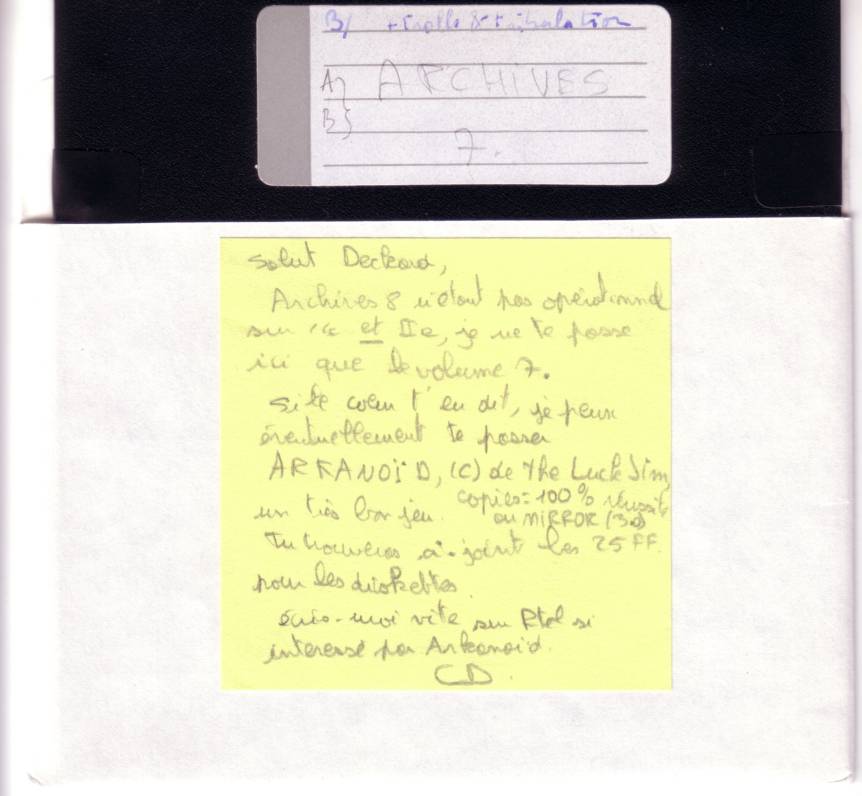 B/ + trolls & tribulation
A} ARCHIVES
B}
7.
Salut Deckard,
Archives 8 n'étant pas opérationnel
sur //c et IIe, je ne te passe
ici que le volume 7.
Si le cœur t'en dit, je peux
éventuellement te passer
ARKANOÏD, (C) de The Luck Jim,
un très bon jeu. copies = 100% réussite
au MIRROR (3.0)
Tu trouveras ci-joint les 25 FF.
pour les diskettes.
écris-moi vite sur Rtel si
interessé par Arkanoïd.
CD.